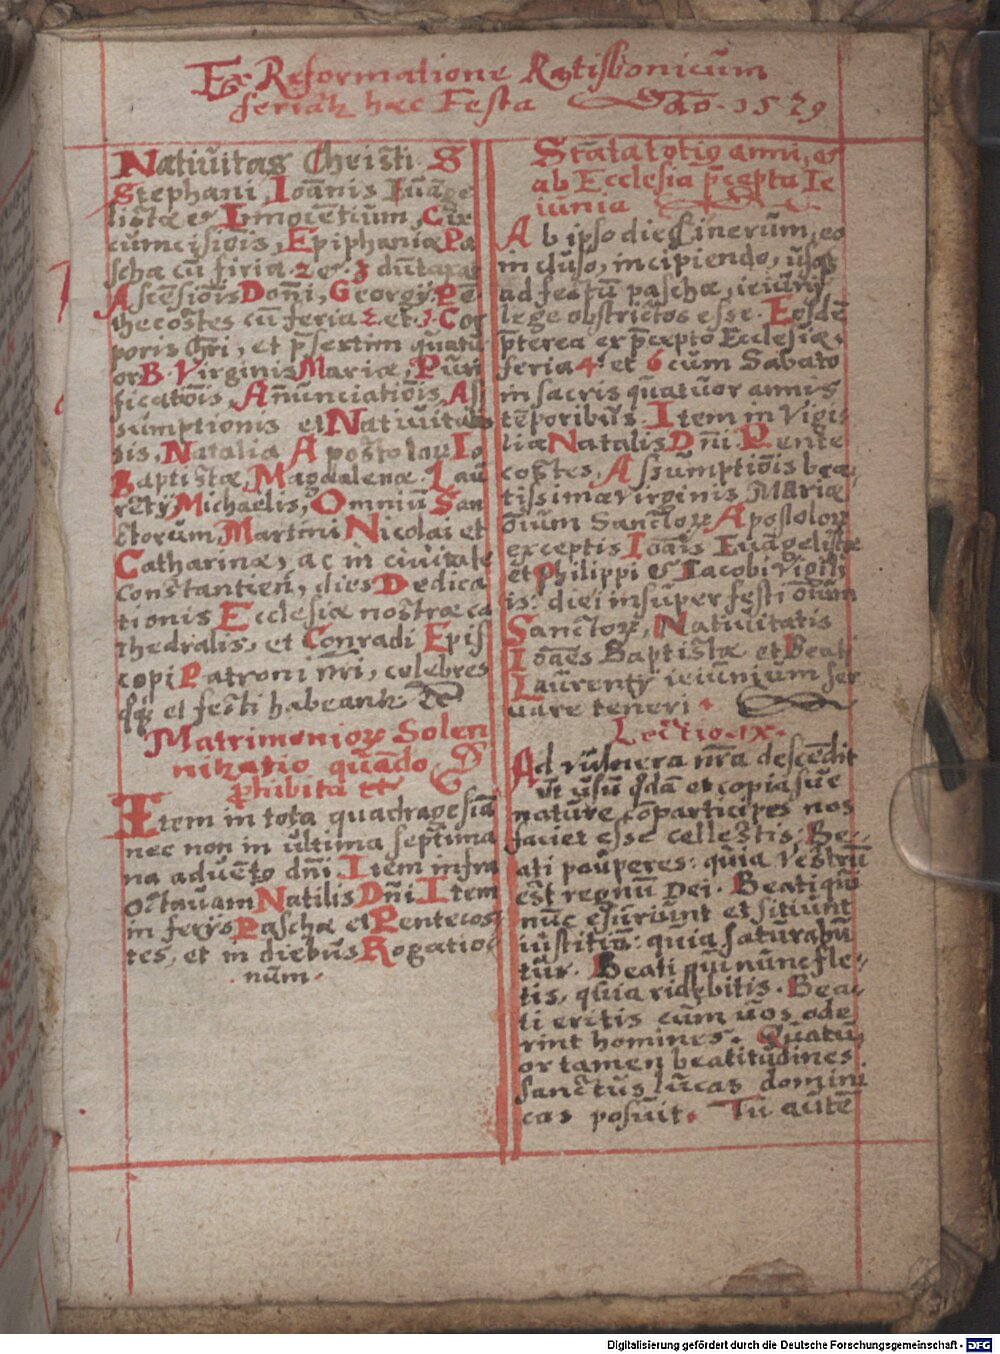 Ex Reformatione Ratisbonicum
feriatʒ hæc Festa Año. 1579
Natiūitas Christi. S
Stephani, Ioāñis Euāge
listæ et Innocētium, Cir
cūmcisiōis, Epiphaniæ Pa
schæ cū firia 2 et 3 dūtaxat
Ascēsiōis Doñi, Georgij. Pē
thecostes cū feria 2. et 3. Cor
poris Chri, et pſertim quatū
or B. Virginis Mariæ, Pūri
ficatōis, Añunciatiōis, Aſ
sumptionis et Natiūita
tis, Natalia Apostoloru Io
Baptistæ, Magdalenæ. Laū
rētij Michaelis, Omniū San
ctorum Martini Nicolai et
Catharinæ, ac in ciuitate
constantien̄, dies Dedica
tionis Ecclesiæ nostræ ca
thedralis, et Conradi Epiſ
copi Patroni nr̄i, celebres
q̄ʒ et festi habeantʒ
Matrimonioꝝ Solen
nizatio quādo
ꝓhibita
Item in tota quadragesiā
nec non in ūltima septīma
na aduēto dn̄i Item infra
octaūam Natilis Dn̄i Item
in ferijs Paschæ et Pentecos
tes, et in diebūs Rogatio
nūm.
Statа totiꝰ anni, et
ab Ecclesia p̄cepta Ie
iūnia
Ab ipso die Cinerūm, eo
in clūso, incipiendo, ūsqꝫ
ad festū paschæ, ieiūnij
lege obstrictos esse. Eosdē
p̄terea ex p̄cepto Ecclesiæ,
feria 4. et 6 cūm Sabato
in sacris quatūor annis
tēporibūs. Item in Vigi:
liæ Natalis Dn̄i Pente
costes, Assūmptiōis bea:
tissimæ virginis Mariæ
ōium Sanctoꝝ Apostoloꝝ
exceptis Ioāis Euāgelistæ
et Philippi et Iacobi Vigilij
is: diei insūper festi ōium
Sanctoꝝ, Natiūitatis
Ioāēs Baptistæ et Beati
Laūrentij ieiūniūm ser
uare teneri.
Lectio. IX.
Ad vūlnera nr̄a descēdit
ūt ūsū qdā et copia sūe
natūre cōparticipes nos
faciet esse cellestis; Be-
ati paūperes: qūia vestrū
est regnū Dei. Beati qūi
nūc esūriūnt et sitiūnt
iūstitiā: qūia satūrabū
tūr. Beati qūi nūnc fle-
tis, qūia ridebitis. Bea-
ti eritis cūm ūos ode
rint homines. Qūatū
or tamen beatitūdines
sanctūs lūcas domini
cas posūit. Tū aūtē
Digitalisierung gefördert durch die Deutsche Forschungsgemeinschaft - DFG